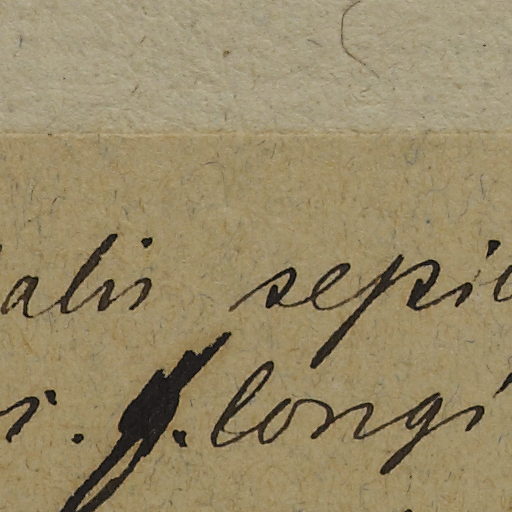 alis sepi
s. f. longi